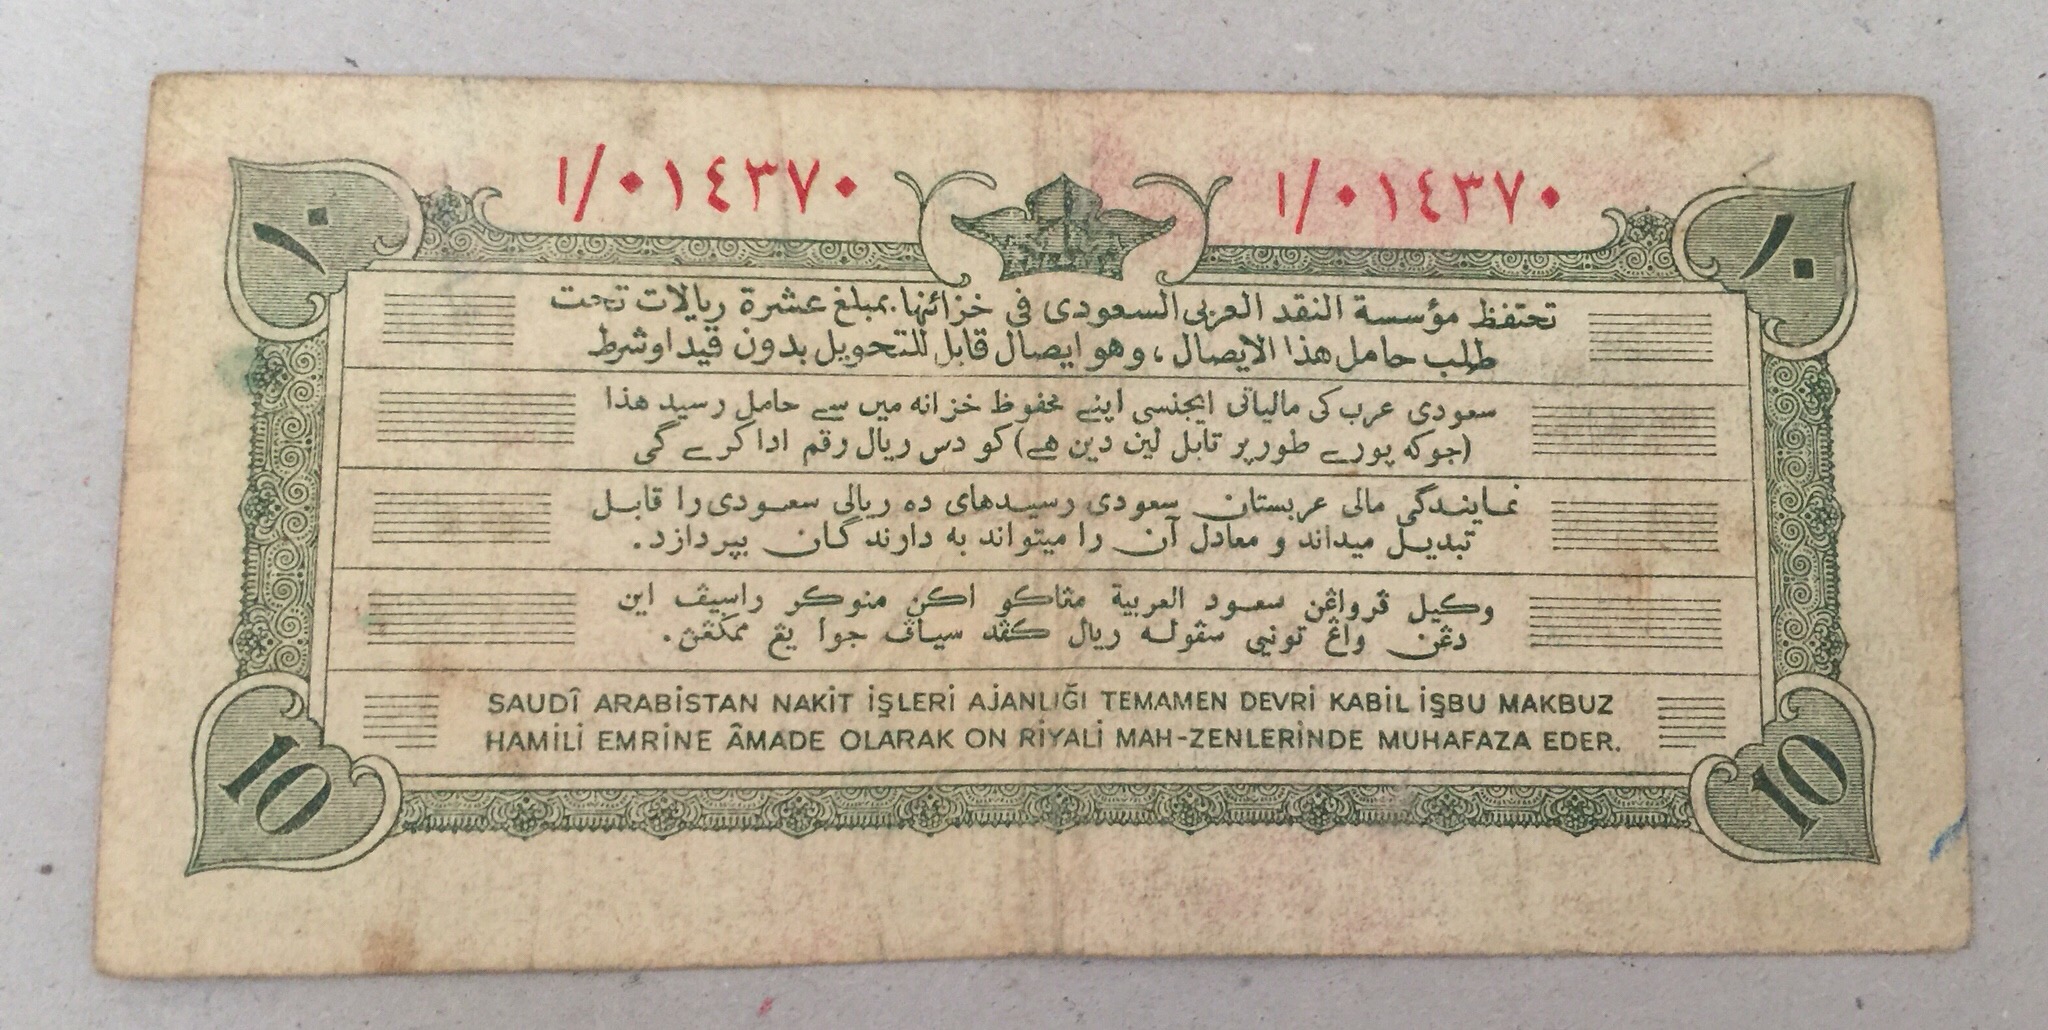 ١/٠١٤٣٧٠
١/٠١٤٣٧٠
١٠
١٠
تحتفظ مؤسسة النقد العربى السعودى فى خزائنها.بمبلغ عشرة ريالات تحت
طلب حامل هذا الايصال ، وهو ايصال قابل للتحويل بدون قيد او شرط
سعودی عرب کی مالیاتی ایجنسی اپنے محفوظ خزانه میں سے حامل رسید هذا
(جوکه پورے طور پر تابل لین دین ھے) کو دس ریال رقم ادا کرے گی
نمایندگی مالی عربستان سعودی رسیدهای ده ریالی سعودی را قابل
تبدیل میداند و معادل آن را میتواند به دارندگان بپردازد.
وكيل ڤرواڠن سعود العربية مڠاكو اكن منوكر راسيڤ اين
دڠن واڠ تونيى سڤوله ريال كڤد سياڤ جوا يڠ ممڬڠن.
SAUDÎ ARABİSTAN NAKİT İŞLERİ AJANLIĞI TEMAMEN DEVRİ KABİL İŞBU MAKBUZ
HAMİLİ EMRİNE ÂMADE OLARAK ON RİYALİ MAH-ZENLERİNDE MUHAFAZA EDER.
10
10